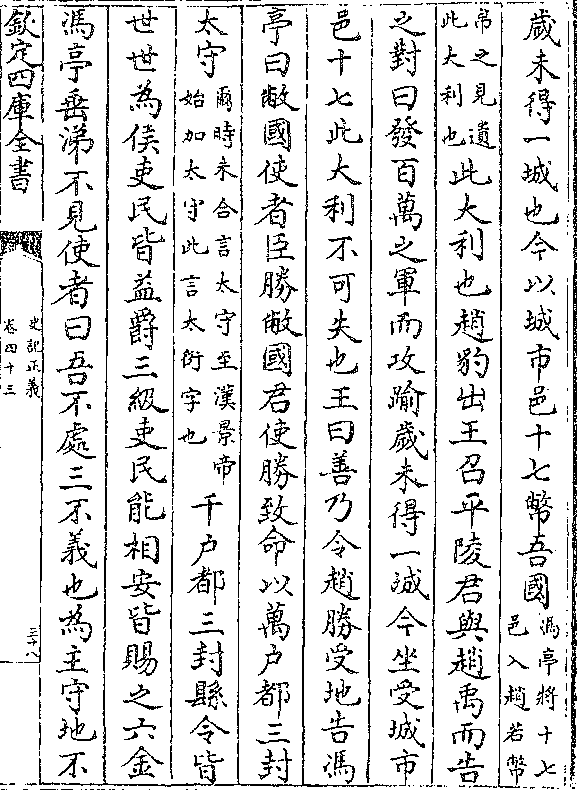 歲未得一城也今以城市邑十七幣吾國馮亭將十七邑入趙若幣
帛之見遺此大利也此大利也趙豹出王召平陵君與趙禹而告
之對曰發百萬之軍而攻踰歲未得一城今坐受城市
邑十七此大利不可失也王曰善乃令趙勝受地告馮
亭曰敝國使者臣勝敝國君使勝致命以萬户都三封
太守爾時未合言太守至漢景帝始加太守此言太衍字也千户都三封縣令皆
世世為侯吏民皆益爵三級吏民能相安皆賜之六金
馮亭垂涕不見使者曰吾不處三不義也為主守地不
欽定四庫全書
史記正義
卷四十三
三十八